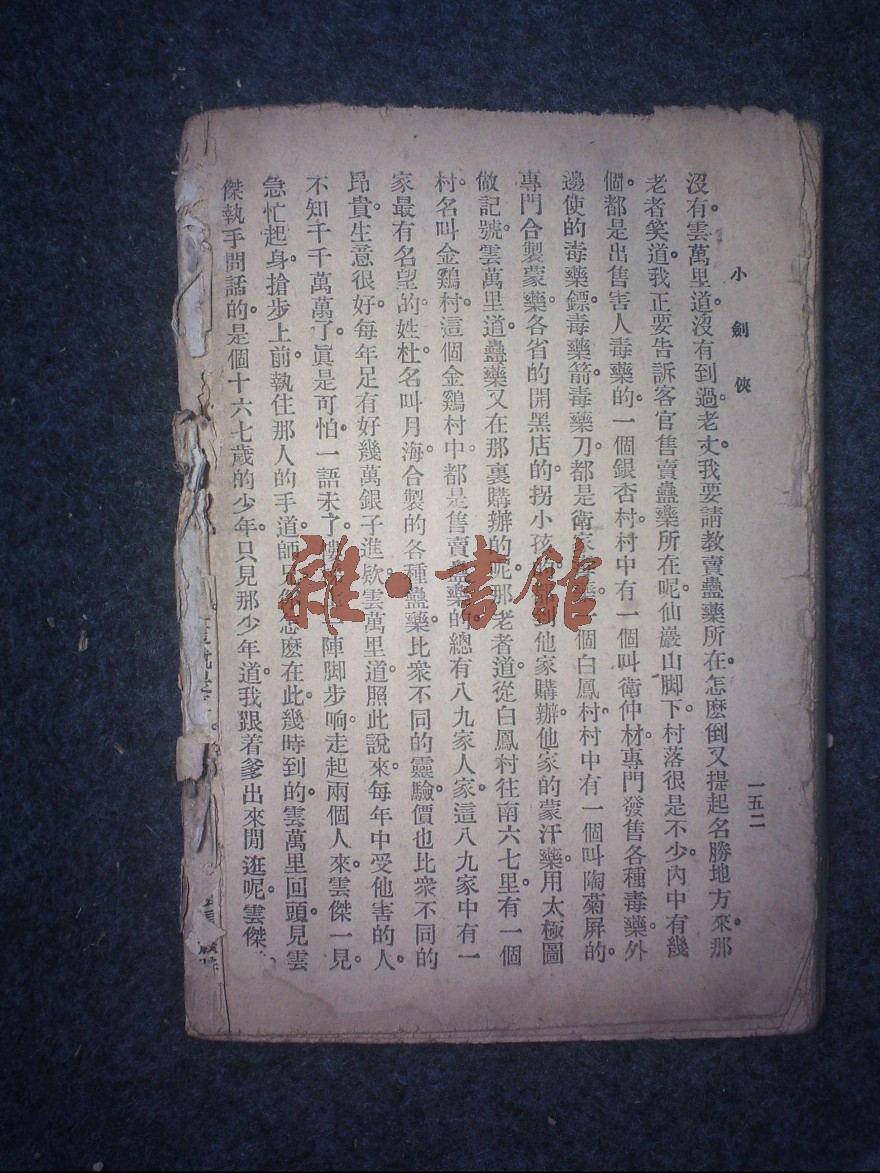 小劍俠
一五二
沒有。雲萬里道。沒有到過。老丈。我要請教賣蠱藥所在。怎麽倒又提起名勝地方來。那
老者笑道。我正要告訴客官售賣蠱藥所在呢。仙巖山脚下。村落很是不少。內中有幾
個。都是出售害人毒藥的。一個銀杏村。村中有一個叫衛仲材。專門發售各種毒藥。外
邊使的毒藥鏢。毒藥箭。毒藥刀。都是衛家 藥。一個白鳳村。村中有一個叫陶菊屏的。
專門合製蒙藥。各省的開黑店的。拐小孩 他家購辦。他家的蒙汗藥。用太極圖
做記號。雲萬里道。蠱藥又在那裏購辦的呢。那老者道。從白鳳村往南六七里。有一個
村。名叫金鷄村。這個金鷄村中。都是售賣蠱藥的。總有八九家人家。這八九家中有一
家最有名望的。姓杜名叫月海。合製的各種蠱藥。比衆不同的靈驗。價也比衆不同的
昂貴。生意很好。每年足有好幾萬銀子進欵。雲萬里道。照此說來。每年中受他害的人。
不知千千萬萬了。眞是可怕。一語未了。 陣脚步响。走起兩個人來。雲傑一見。
急忙起身。搶步上前。執住那人的手道。師兄你怎麽在此。幾時到的。雲萬里回頭。見雲
傑執手問話的。是個十六七歲的少年。只見那少年道。我跟着爹出來閒逛呢。雲傑
雜·書館